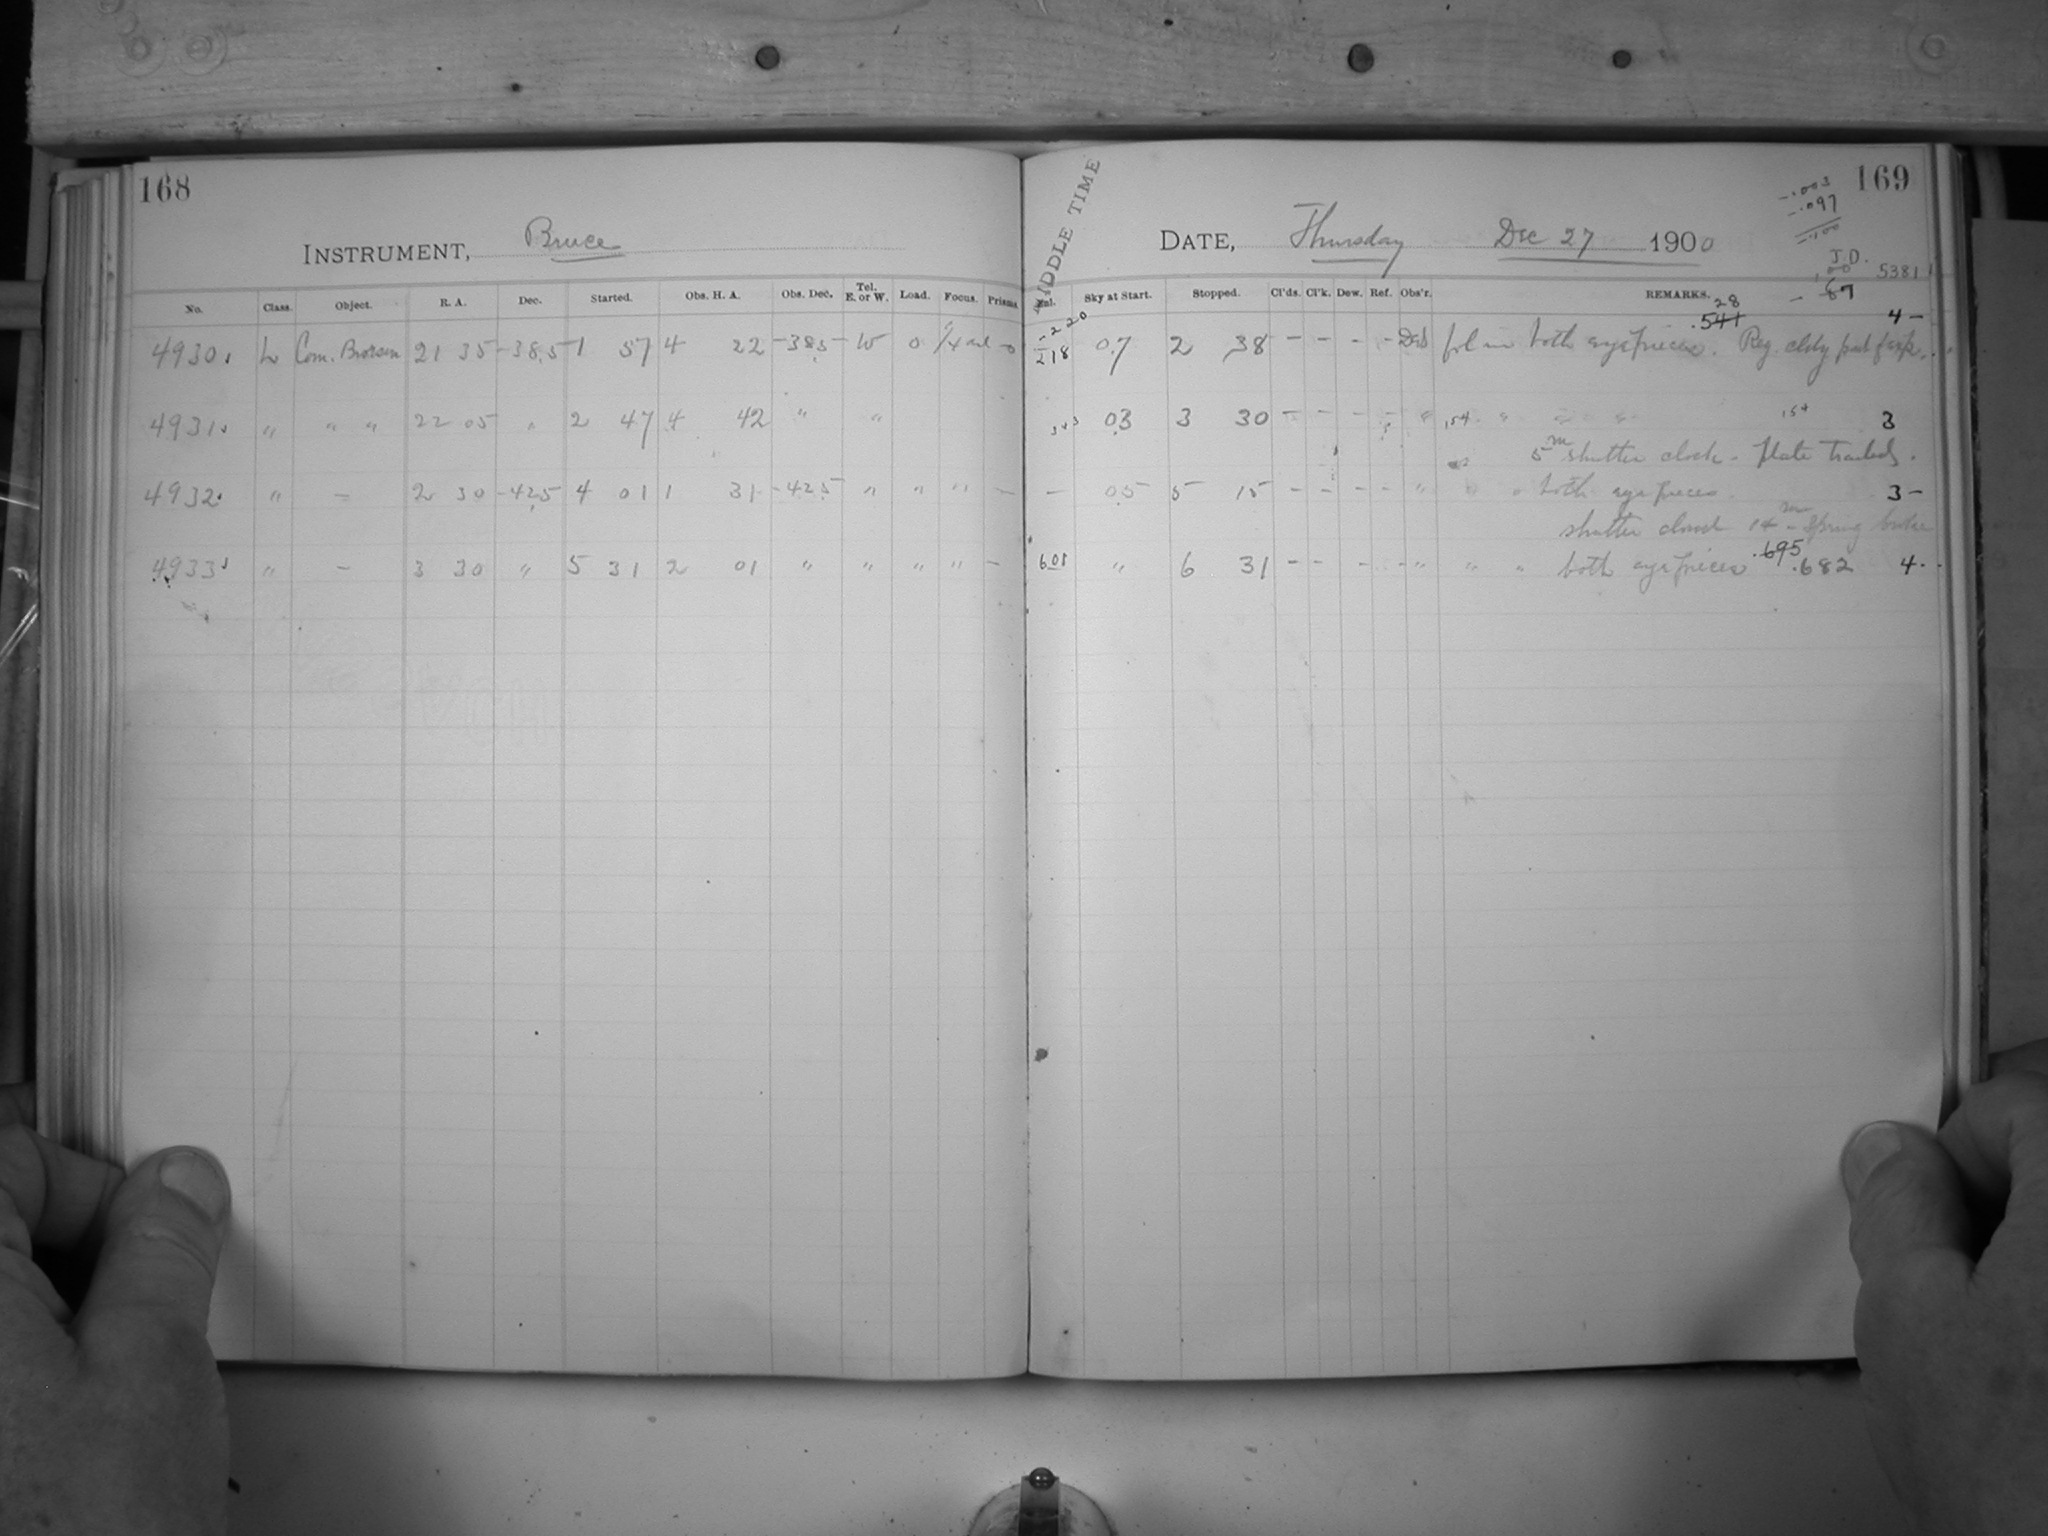 168
INSTRUMENT, Bruce
No. Class. Object. R. A. Dec. Started. Obs. H. A. Obs. Dec. Tel. E. or W. Load. Focus. Prisms.
4930. L Com. Brorsen 21 35 -38.5 1 57 4 22 -38.5 W 0
4931. " " " 22 05 " 2 47 4 42 " "
4932. " - 2 30 -42.5 4 01 1 31 -42.5 " " " -
4933 " - 3 30 " 5 31 2 01 " " " " -
169
MIDDLE TIME
DATE, Thursday Dec 27 1900
-.003
-.097
-.100
J.D. 53811
Sky at Start. Stopped. Cl'ds. Cl'k. Dew. Ref. Obs'r. REMARKS.
-220
218 0.7 2 38 - - - - fol in both eyepieces. Reg. cldy .541 28 4-
0.3 3 30 - - - - " .154 " 154 3
5m shutter clock - Plate trailed.
- 0.5 5 15 - - - - " " " both eyepieces 3-
shutter closed 14m - Spring broke
6.01 " 6 31 - - - - " " " both eyepieces .695 .682 4.